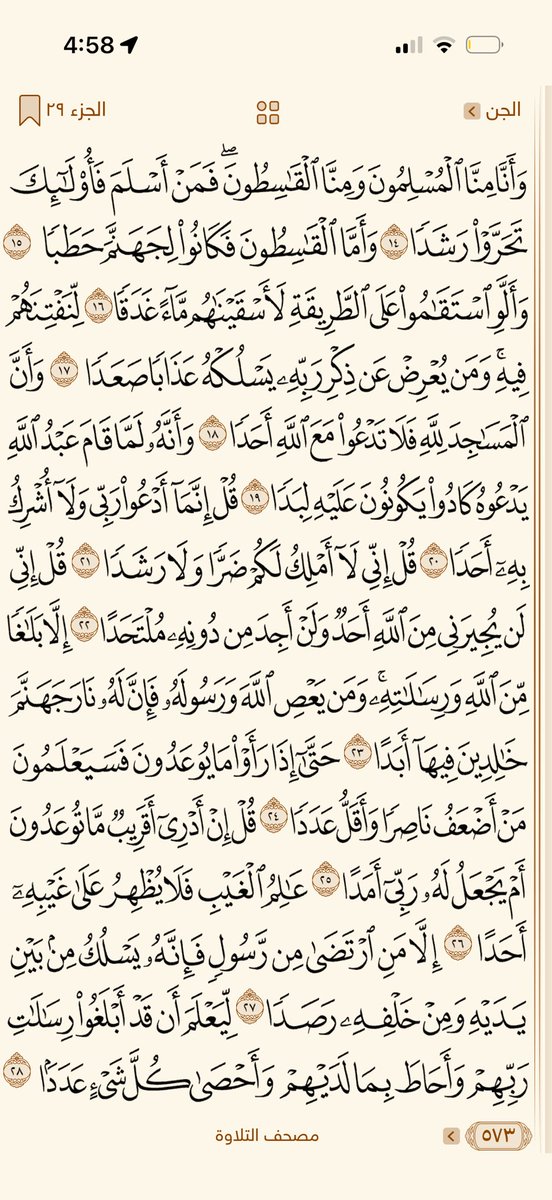 4:58
الجن
الجزء ٢٩
وَأَنَّا مِنَّا ٱلْمُسْلِمُونَ وَمِنَّا ٱلْقَـٰسِطُونَۖ فَمَنْ أَسْلَمَ فَأُو۟لَـٰٓئِكَ
تَحَرَّوْا۟ رَشَدًا ١٤ وَأَمَّا ٱلْقَـٰسِطُونَ فَكَانُوا۟ لِجَهَنَّمَ حَطَبًا ١٥
وَأَلَّوِ ٱسْتَقَـٰمُوا۟ عَلَى ٱلطَّرِيقَةِ لَأَسْقَيْنَـٰهُم مَّآءً غَدَقًا ١٦ لِّنَفْتِنَهُمْ
فِيهِۚ وَمَن يُعْرِضْ عَن ذِكْرِ رَبِّهِۦ يَسْلُكْهُ عَذَابًا صَعَدًا ١٧ وَأَنَّ
ٱلْمَسَـٰجِدَ لِلَّهِ فَلَا تَدْعُوا۟ مَعَ ٱللَّهِ أَحَدًا ١٨ وَأَنَّهُۥ لَمَّا قَامَ عَبْدُ ٱللَّهِ
يَدْعُوهُ كَادُوا۟ يَكُونُونَ عَلَيْهِ لِبَدًا ١٩ قُلْ إِنَّمَآ أَدْعُوا۟ رَبِّى وَلَآ أُشْرِكُ
بِهِۦٓ أَحَدًا ٢٠ قُلْ إِنِّى لَآ أَمْلِكُ لَكُمْ ضَرًّا وَلَا رَشَدًا ٢١ قُلْ إِنِّى
لَن يُجِيرَنِى مِنَ ٱللَّهِ أَحَدٌ وَلَنْ أَجِدَ مِن دُونِهِۦ مُلْتَحَدًا ٢٢ إِلَّا بَلَـٰغًا
مِّنَ ٱللَّهِ وَرِسَـٰلَـٰتِهِۦۚ وَمَن يَعْصِ ٱللَّهَ وَرَسُولَهُۥ فَإِنَّ لَهُۥ نَارَ جَهَنَّمَ
خَـٰلِدِينَ فِيهَآ أَبَدًا ٢٣ حَتَّىٰٓ إِذَا رَأَوْا۟ مَا يُوعَدُونَ فَسَيَعْلَمُونَ
مَنْ أَضْعَفُ نَاصِرًا وَأَقَلُّ عَدَدًا ٢٤ قُلْ إِنْ أَدْرِىٓ أَقَرِيبٌ مَّا تُوعَدُونَ
أَمْ يَجْعَلُ لَهُۥ رَبِّىٓ أَمَدًا ٢٥ عَـٰلِمُ ٱلْغَيْبِ فَلَا يُظْهِرُ عَلَىٰ غَيْبِهِۦٓ
أَحَدًا ٢٦ إِلَّا مَنِ ٱرْتَضَىٰ مِن رَّسُولٍ فَإِنَّهُۥ يَسْلُكُ مِنۢ بَيْنِ
يَدَيْهِ وَمِنْ خَلْفِهِۦ رَصَدًا ٢٧ لِّيَعْلَمَ أَن قَدْ أَبْلَغُوا۟ رِسَـٰلَـٰتِ
رَبِّهِمْ وَأَحَاطَ بِمَا لَدَيْهِمْ وَأَحْصَىٰ كُلَّ شَىْءٍ عَدَدًۢا ٢٨
٥٧٣
مصحف التلاوة